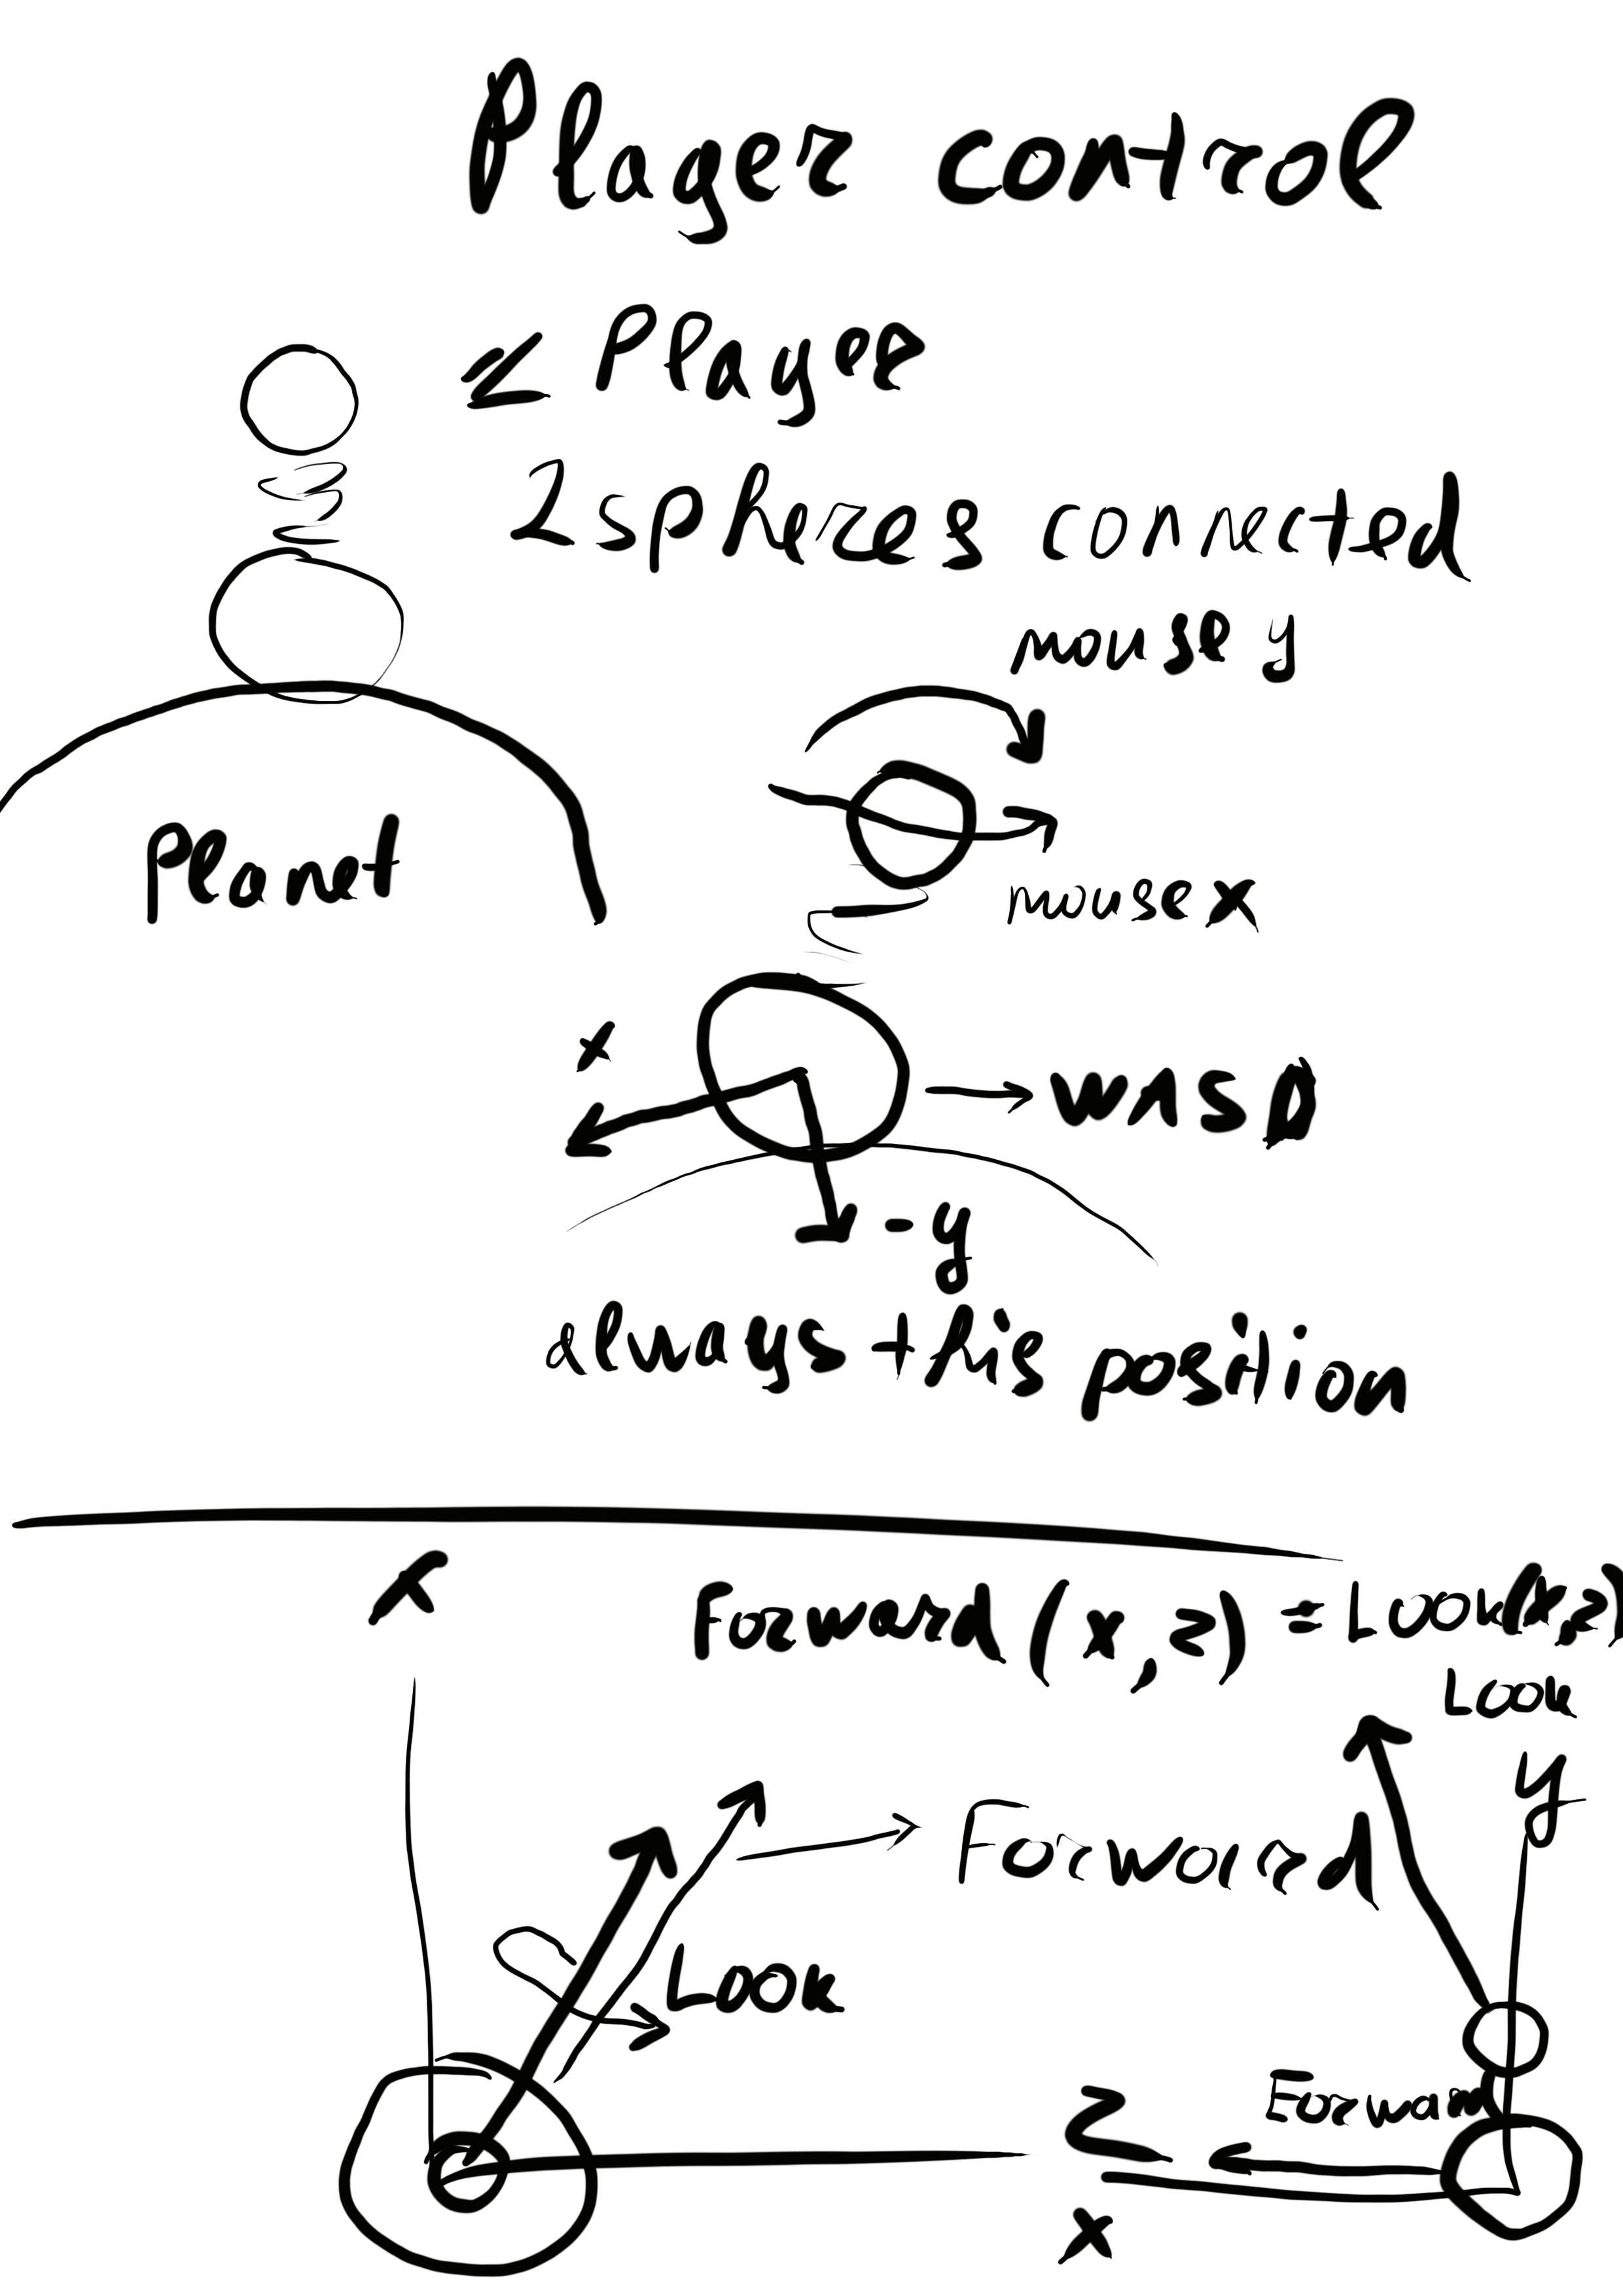 Player control
∠ Player
2 spheres connected
mouse y
Planet
mouse x
x
→ WASD
-y
always this position
x
Forward (x, z) = Look(x, z)
Look
y
Forward
Look
Forward
z
x